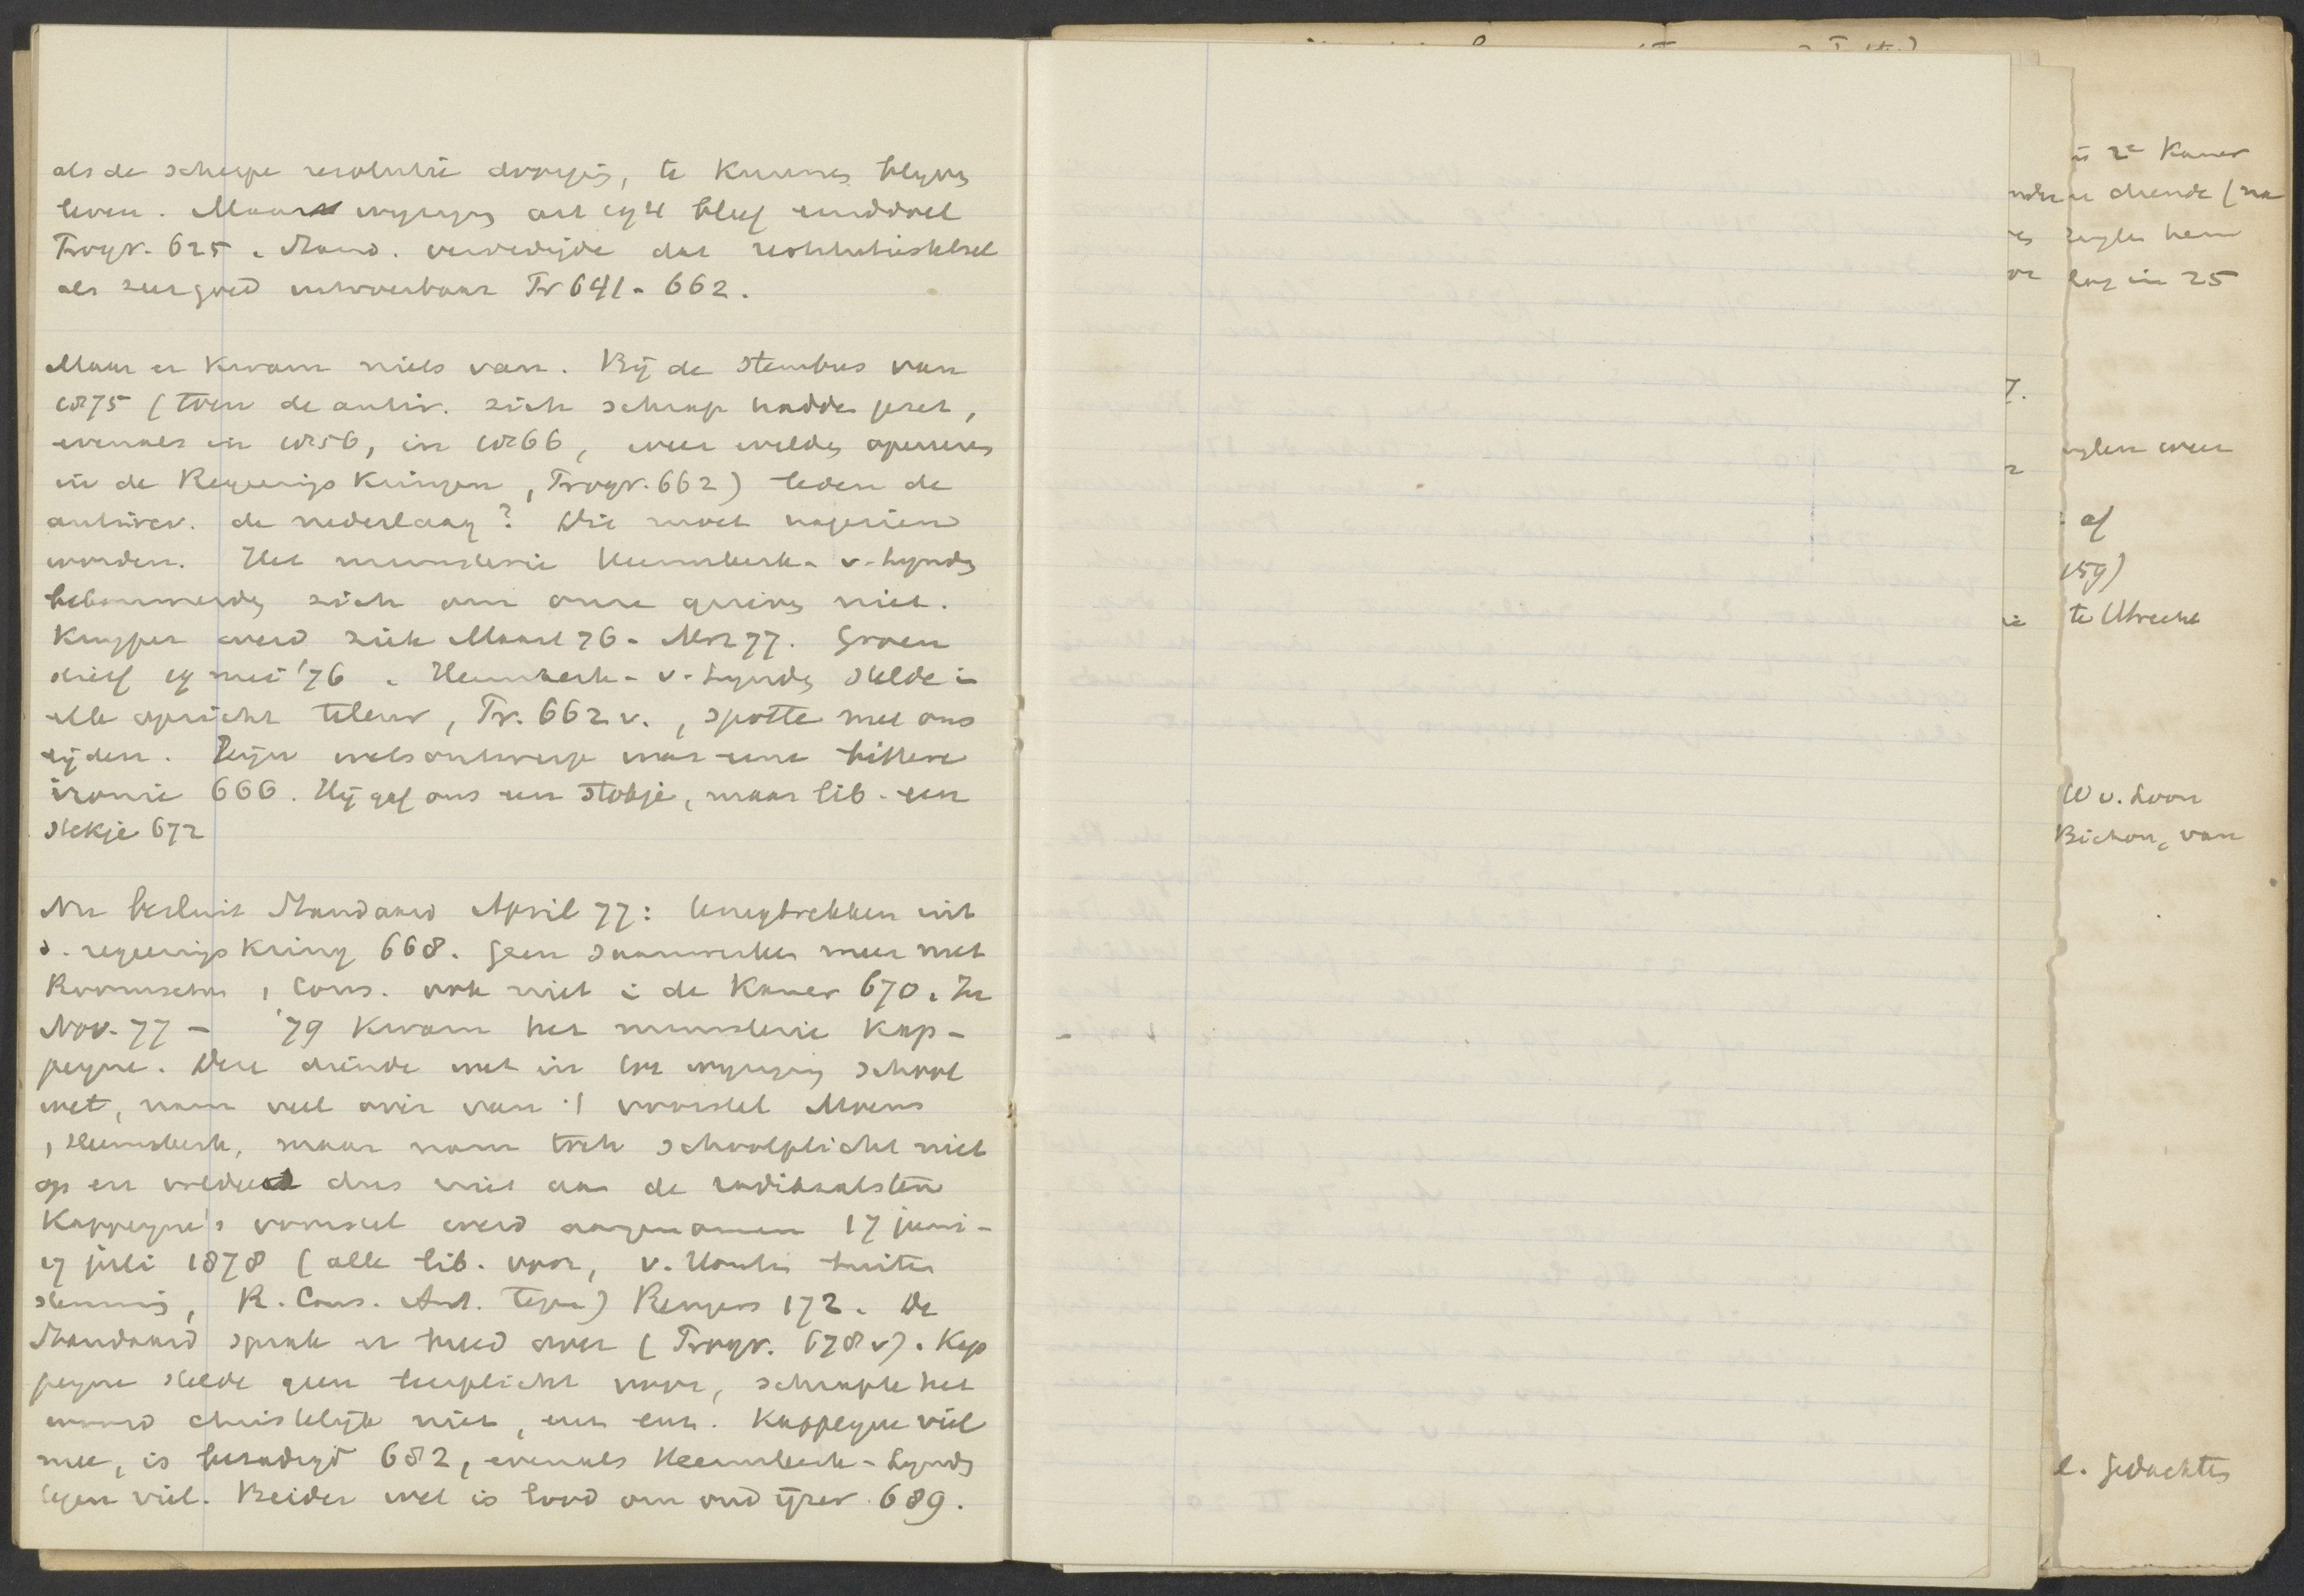 als de scherpe resolutie doorging, te kunnen blijven
leven. Maar wijziging art 194 bleef einddoel
Progr. 625. Stand. verdedigde dat restitutiestelsel
als zeer goed uitvoerbaar Pr 641-662.
Maar er kwam niets van. Bij de stembus van
1875 (toen de antir. zich schrap hadden gezet,
evenals in 1856, in 1866, weer wilden opereeren
in de Regeerings kringen, Progr. 662) leden de
antirev. de nederlaag? Dit moet nagezien
worden. Het ministerie Heemskerk - v. Lynden
bekommerde zich om onze grieven niet.
Kuyper werd ziek Maart 76 - Mrt 77. Groen
stierf 19 mei '76. Heemskerk - v. Lynden stelde in
elk opzicht teleur, Pr. 662 v., spotte met ons
lijden. Zijn wetsontwerp was eene bittere
ironie 666. Hij gaf ons een stokje, maar lib. een
stekje 672
Nu besluit Standaard April 77: terugtrekken uit
d. regeerings kring 668. Geen saamwerken meer met
Roomschen, Cons. ook niet in de Kamer 670. In
Nov. 77 - '79 kwam het ministerie Kap-
peyne. Deze diende wet in tot wijziging school
wet, nam veel over van 't voorstel Moens
, Heemskerk, maar nam toch schoolplicht niet
op en voldeed dus niet aan de radikaalsten
Kappeyne's voorstel werd aangenomen 17 juni -
19 juli 1878 (alle lib. voor, v. Houten buiten
stemming, R. Cons. Ant. tegen) Rengers 172. De
Standaard sprak er breed over (Progr. 678 v). Kap
peyne stelde geen leerplicht voor, schrapte het
woord christelijk niet, enz enz. Kappeyne viel
mee, is bezadigd 682, evenals Heemskerk - Lynden
tegen viel. Beider wet is lood om oud ijzer 689.
in 2e Kamer
diende (na
hem
in 25
weer
af
159)
te Utrecht
W v. Loon
Bichon, van
l. Gedachten